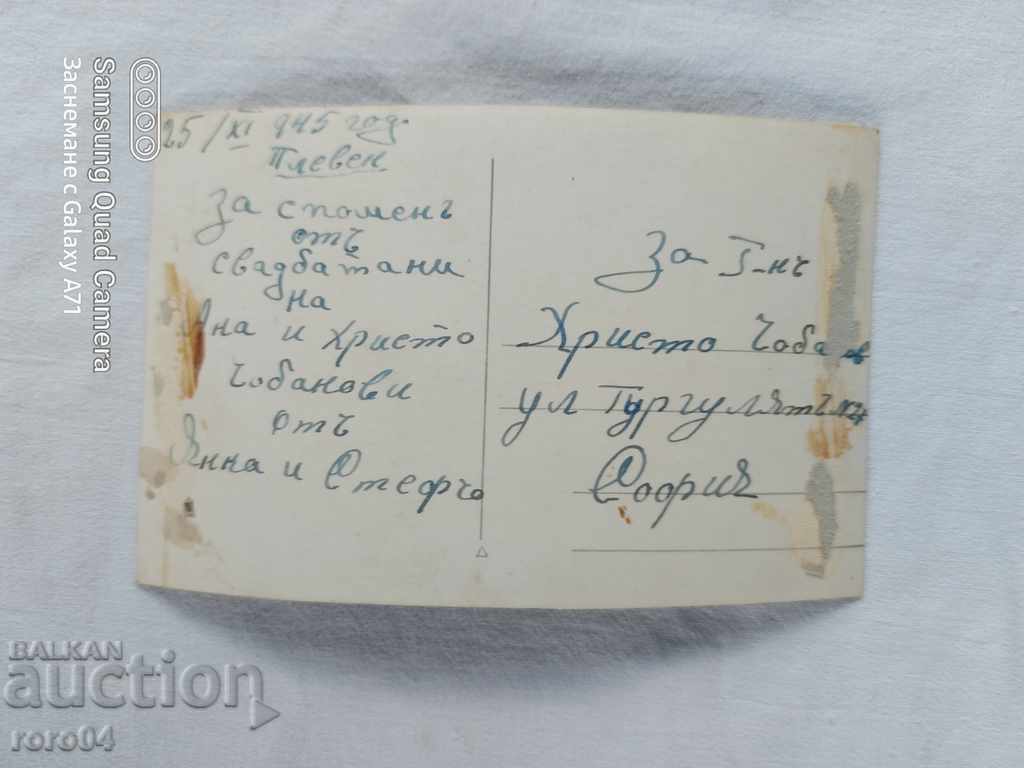 25/XI 945 год.
Плевен
За споменъ
отъ
свадбата ни
на
Яна и Христо
Чобанови
отъ
Янна и Стефчо
За Г-нъ
Христо Чобанов
ул Гургулятъ
София
Samsung Quad Camera
Заснемане с Galaxy A71
BALKAN
auction
roro04